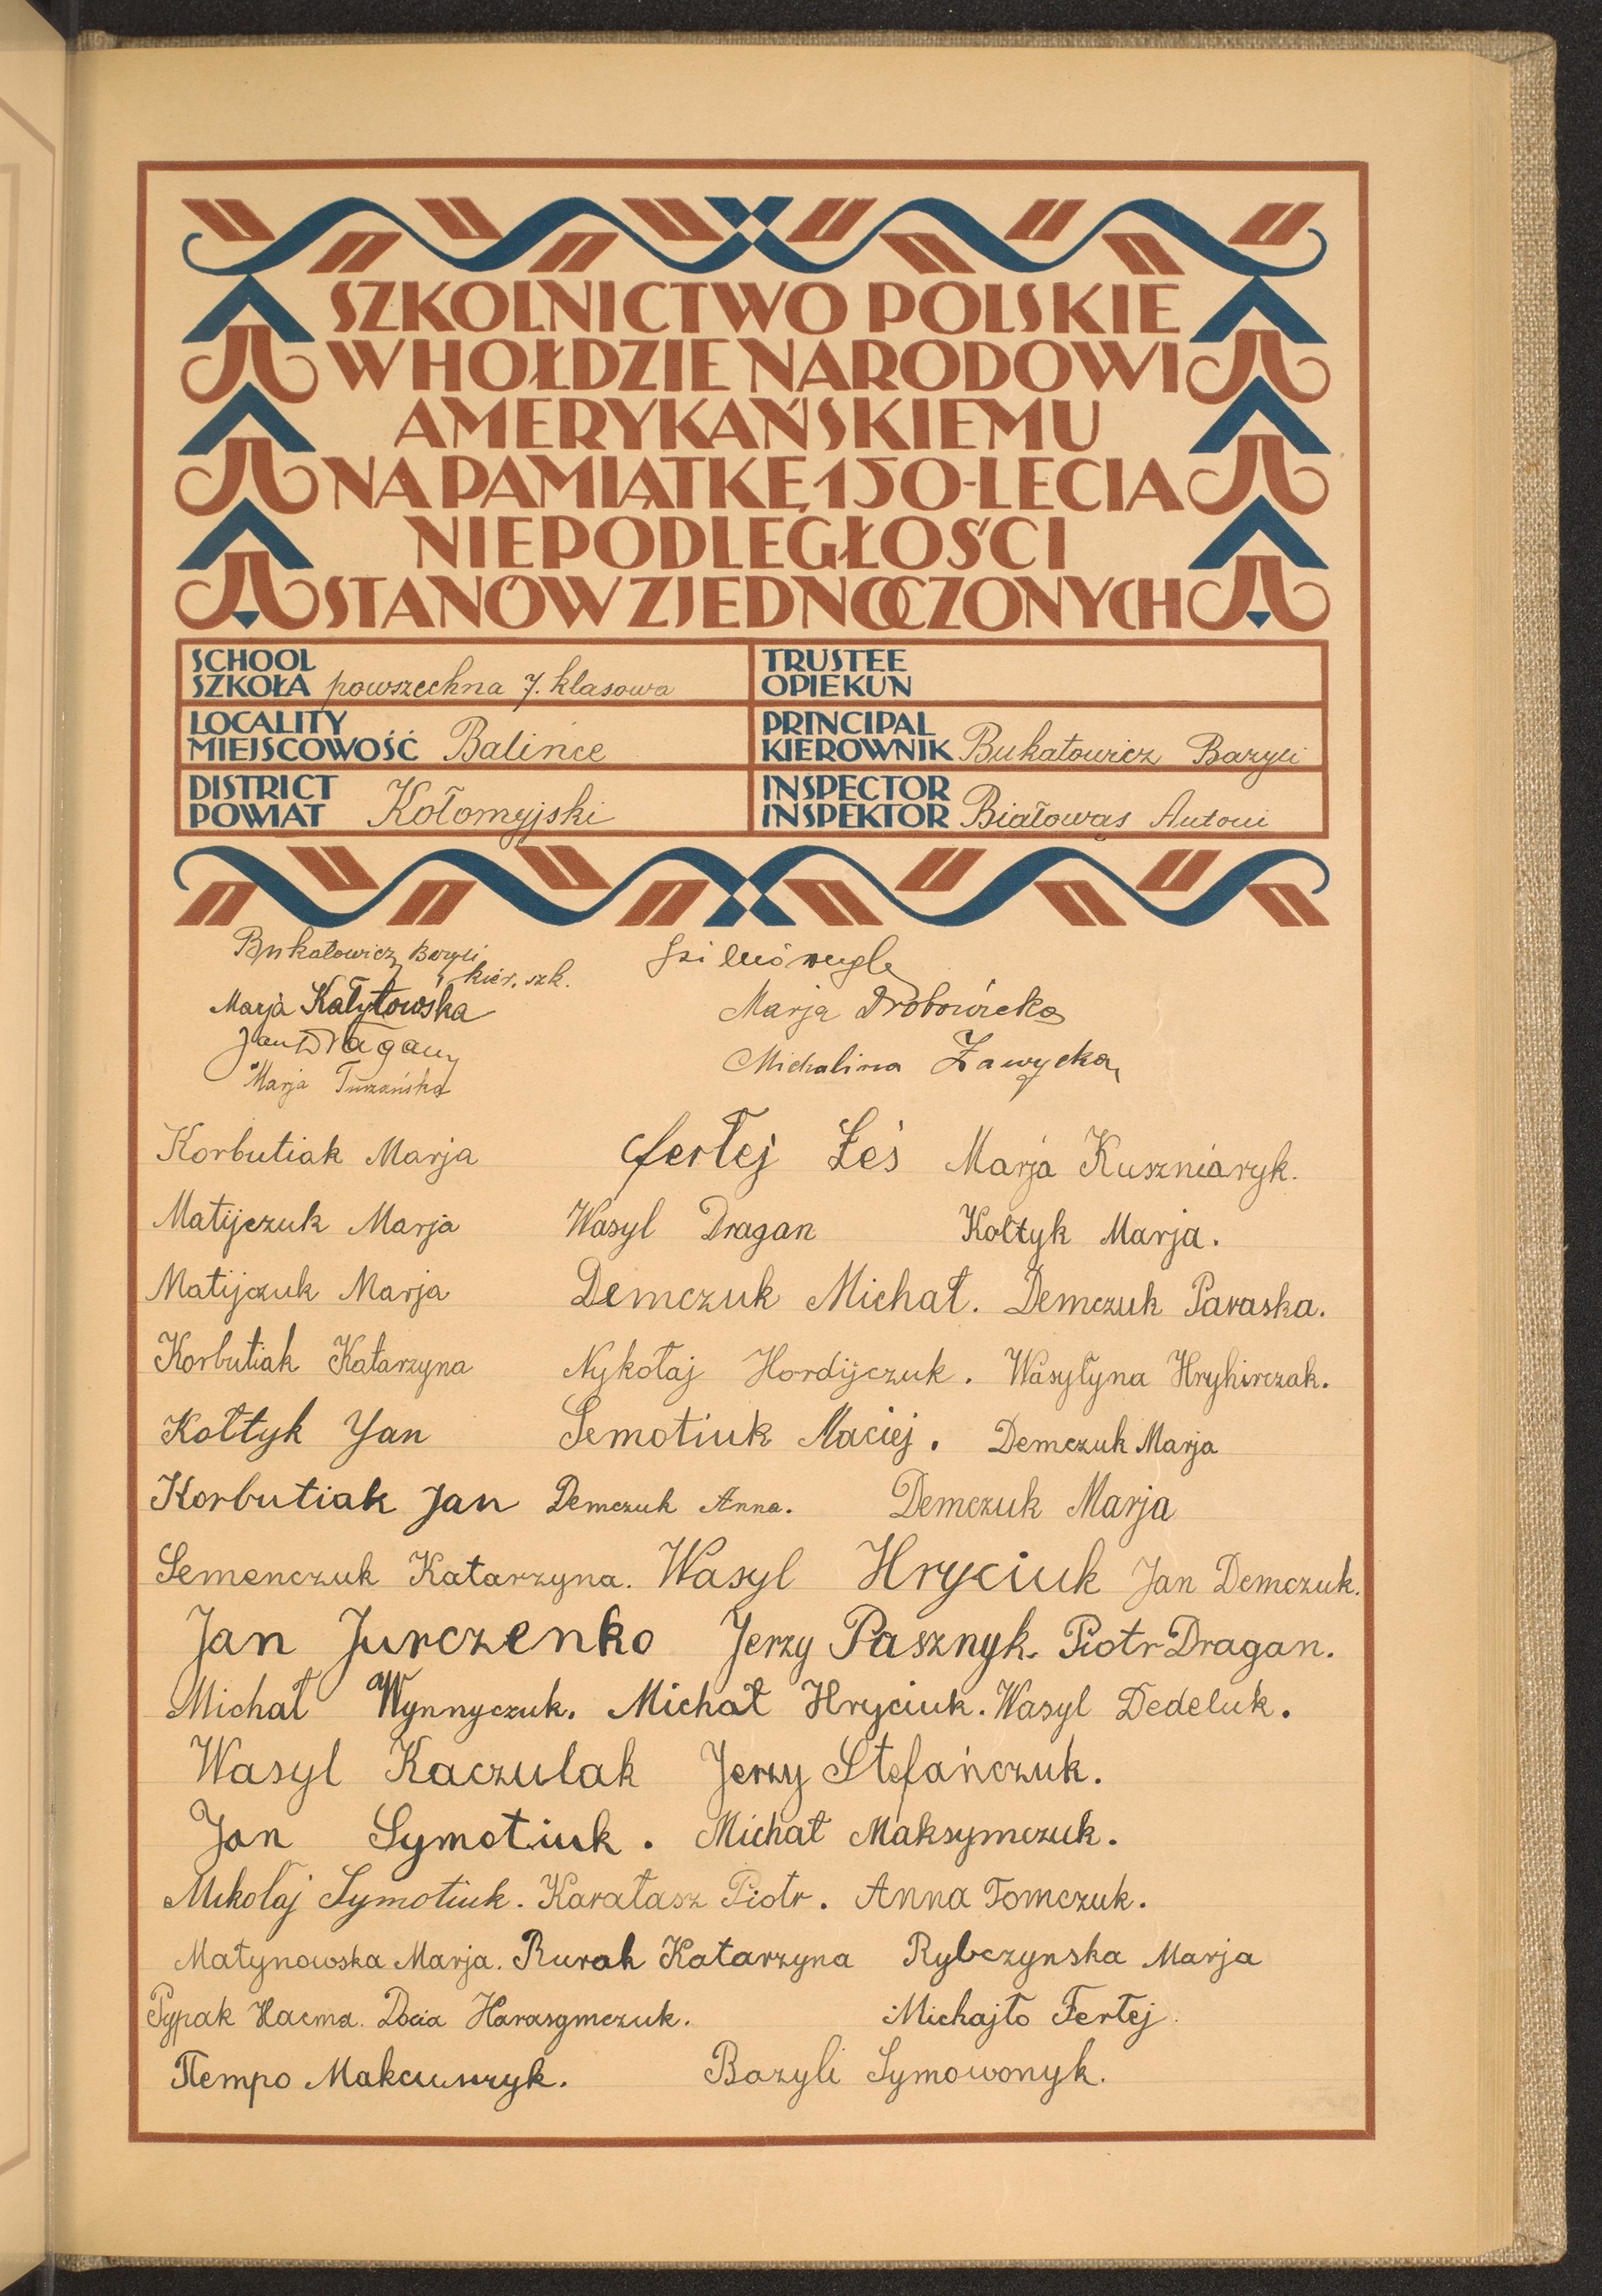 SZKOLNICTWO POLSKIE
W HOŁDZIE NARODOWI
AMERYKAŃSKIEMU
NA PAMIĄTKĘ 150-LECIA
NIEPODLEGŁOŚCI
STANÓW ZJEDNOCZONYCH
SCHOOL
SZKOŁA powszechna 7. klasowa
TRUSTEE
OPIEKUN
LOCALITY
MIEJSCOWOŚĆ Balińce
PRINCIPAL
KIEROWNIK Bukatowicz Bazyli
DISTRICT
POWIAT Kołomyjski
INSPECTOR
INSPEKTOR Białowąs Antoni
Bukatowicz Bazyli
kier. szk.
Marja Kałytowska
Marja Drobowicka
Jan Dragan
Michalina Zawycka
Marja Turzańska
Korbutiak Marja Fertej Łeś Marja Kuszniaryk.
Matijczuk Marja Wasyl Dragan Kołtyk Marja.
Matijczuk Marja Demczuk Michał. Demczuk Paraska.
Korbutiak Katarzyna Nykołaj Hordijczuk. Wasyłyna Hryhirczak.
Kołtyk Jan Semotiuk Maciej. Demczuk Marja
Korbutiak Jan Demczuk Anna. Demczuk Marja
Semenczuk Katarzyna. Wasyl Hryciuk Jan Demczuk.
Jan Jurczenko Jerzy Pasznyk. Piotr Dragan.
Michał Wynnyczuk. Michał Hryciuk. Wasyl Dedeluk.
Wasyl Kaczulak Jerzy Stefańczuk.
Jan Symotiuk. Michał Maksymczuk.
Mikołaj Symotiuk. Karałasz Piotr. Anna Tomczuk.
Małynowska Marja. Rurak Katarzyna Rybczynska Marja
Рурак Настя. Docia Harasymczuk. Michajło Fertej.
Петро Bazyli Symowonyk.